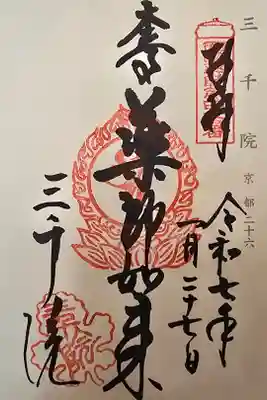 三千院 京都二十六
奉拝
令和七年
一月二十七日
薬師如来
三千院